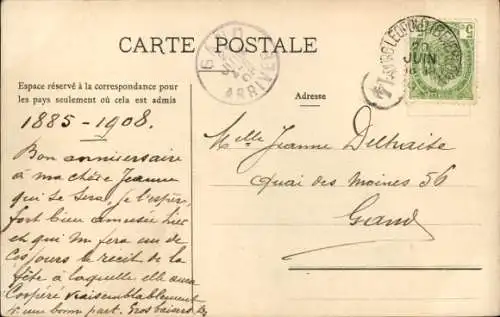 CARTE POSTALE
GAND
ARRIVÉE
LEOPOLD
JUIN
5
Espace réservé à la correspondance pour
les pays seulement où cela est admis
Adresse
1885 - 1908.
Bon anniversaire
à ma chère Jeanne
qui se sera, je l'espère,
fort bien amusée hier
et qui me fera un de
ces jours le récit de la
fête à laquelle elle aura
coopéré vraisemblablement
une bonne part. Gros baisers
Melle Jeanne Delhaise
Quai des Moines 56
Gand